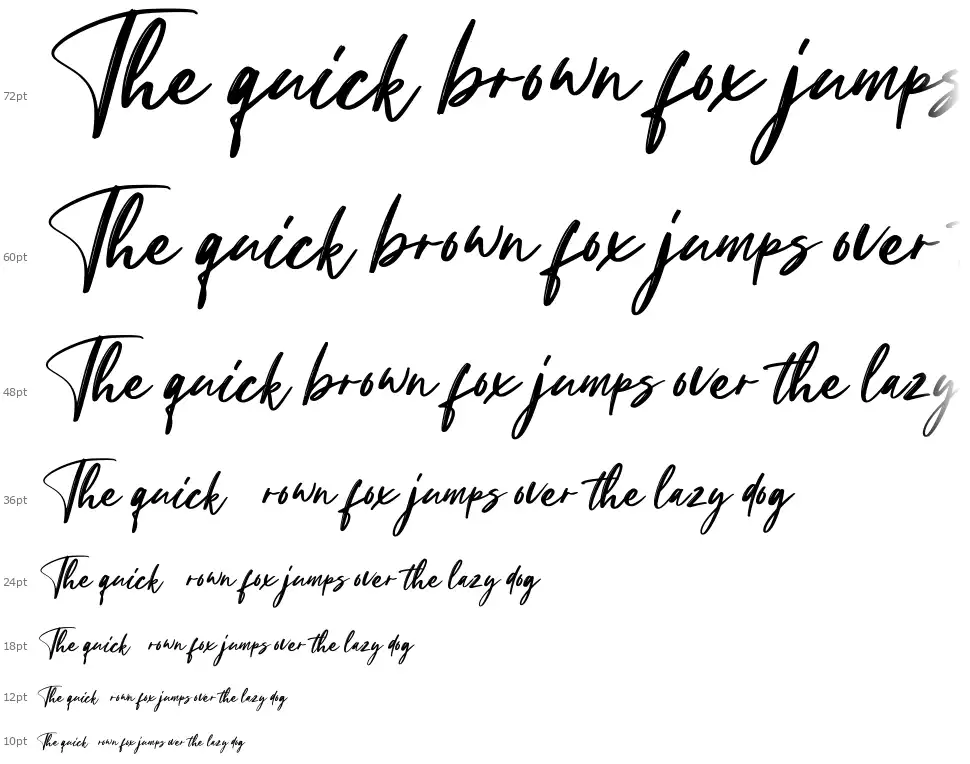 72pt The quick brown fox jumps
60pt The quick brown fox jumps over
48pt The quick brown fox jumps over the lazy
36pt The quick rown fox jumps over the lazy dog
24pt The quick rown fox jumps over the lazy dog
18pt The quick rown fox jumps over the lazy dog
12pt The quick rown fox jumps over the lazy dog
10pt The quick rown fox jumps over the lazy dog